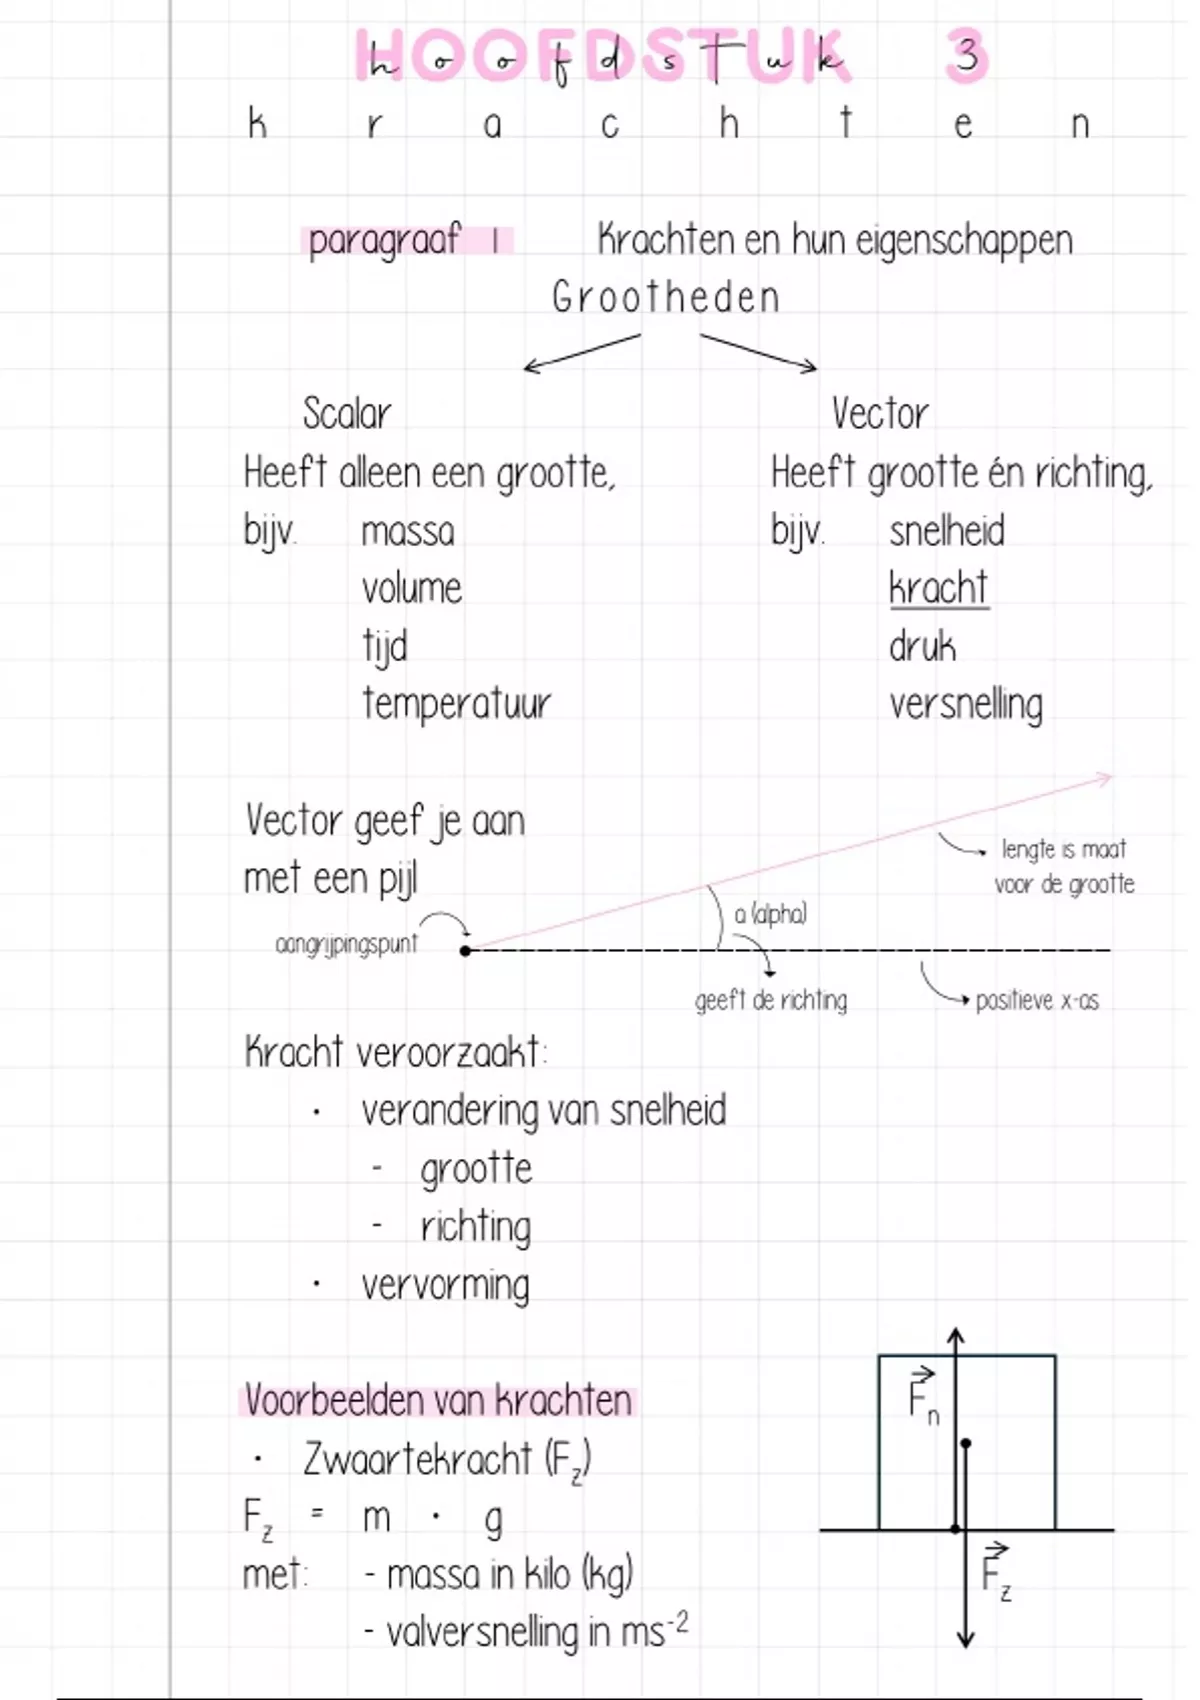 HOOFDSTUK 3
hoofdstuk 3
krachten
paragraaf 1 Krachten en hun eigenschappen
Grootheden
Scalar Vector
Heeft alleen een grootte, Heeft grootte én richting,
bijv. massa bijv. snelheid
volume kracht
tijd druk
temperatuur versnelling
Vector geef je aan
met een pijl
lengte is maat
voor de grootte
a (alpha)
aangrijpingspunt
geeft de richting
positieve x-as
Kracht veroorzaakt:
· verandering van snelheid
- grootte
- richting
· vervorming
Voorbeelden van krachten
· Zwaartekracht (Fz)
Fz = m · g
met: - massa in kilo (kg)
- valversnelling in ms⁻²
Fn
Fz